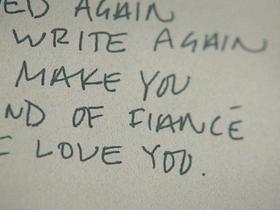 ED AGAIN
WRITE AGAIN
MAKE YOU
ND OF FIANCÉ
E LOVE YOU.